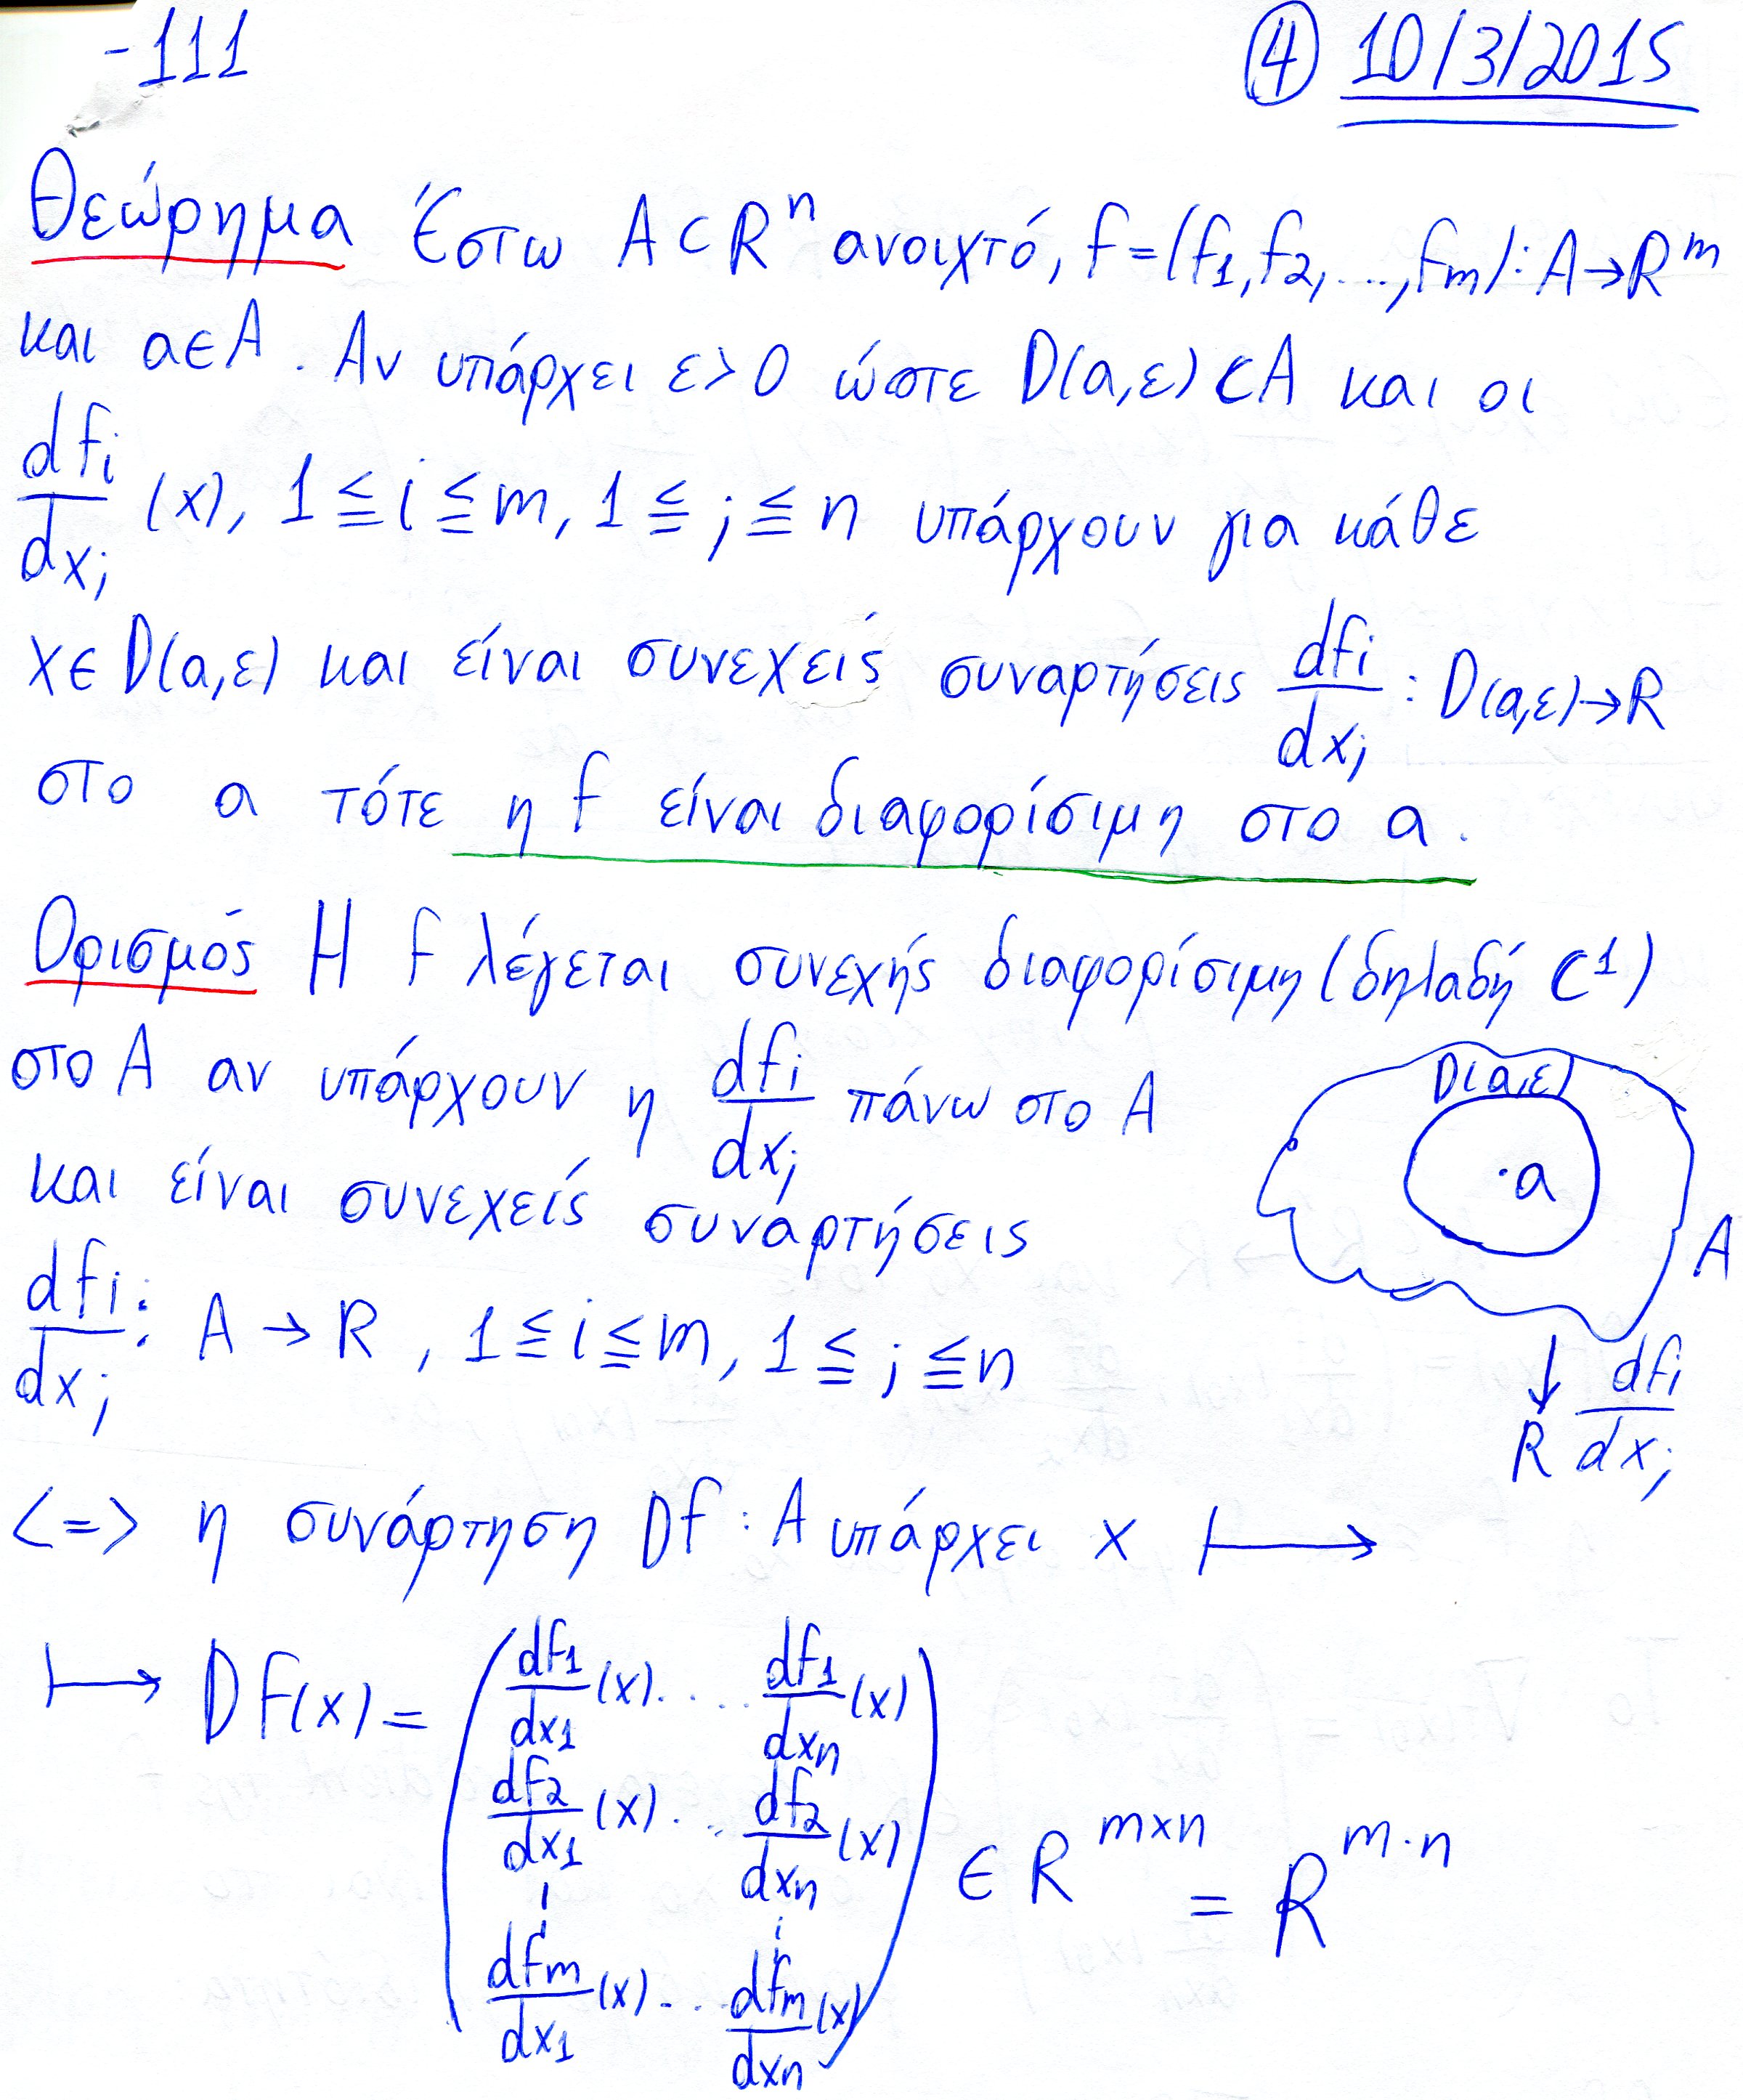 -111
④ 10/3/2015
Θεώρημα Έστω A⊂Rⁿ ανοιχτό, f=(f₁,f₂,...,fm): A→Rᵐ
και a∈A. Αν υπάρχει ε>0 ώστε D(a,ε)⊂A και οι
dfi/dxj (x), 1≦i≦m, 1≦j≦n υπάρχουν για κάθε
x∈D(a,ε) και είναι συνεχείς συναρτήσεις dfi/dxj : D(a,ε)→R
στο a τότε η f είναι διαφορίσιμη στο a.
Ορισμός Η f λέγεται συνεχής διαφορίσιμη (δηλαδή C¹)
στο A αν υπάρχουν η dfi/dxj πάνω στο A
και είναι συνεχείς συναρτήσεις
dfi/dxj : A→R, 1≦i≦m, 1≦j≦n
D(a,ε)
·a
A
↓ dfi/dxj
R
<=> η συνάρτηση Df : A υπάρχει x ⟼
⟼ Df(x) = ( df₁/dx₁ (x) .... df₁/dxn (x)
df₂/dx₁ (x) ... df₂/dxn (x)
⋮ ⋮
dfm/dx₁ (x) ... dfm/dxn (x) ) ∈ R^{m×n} = R^{m·n}